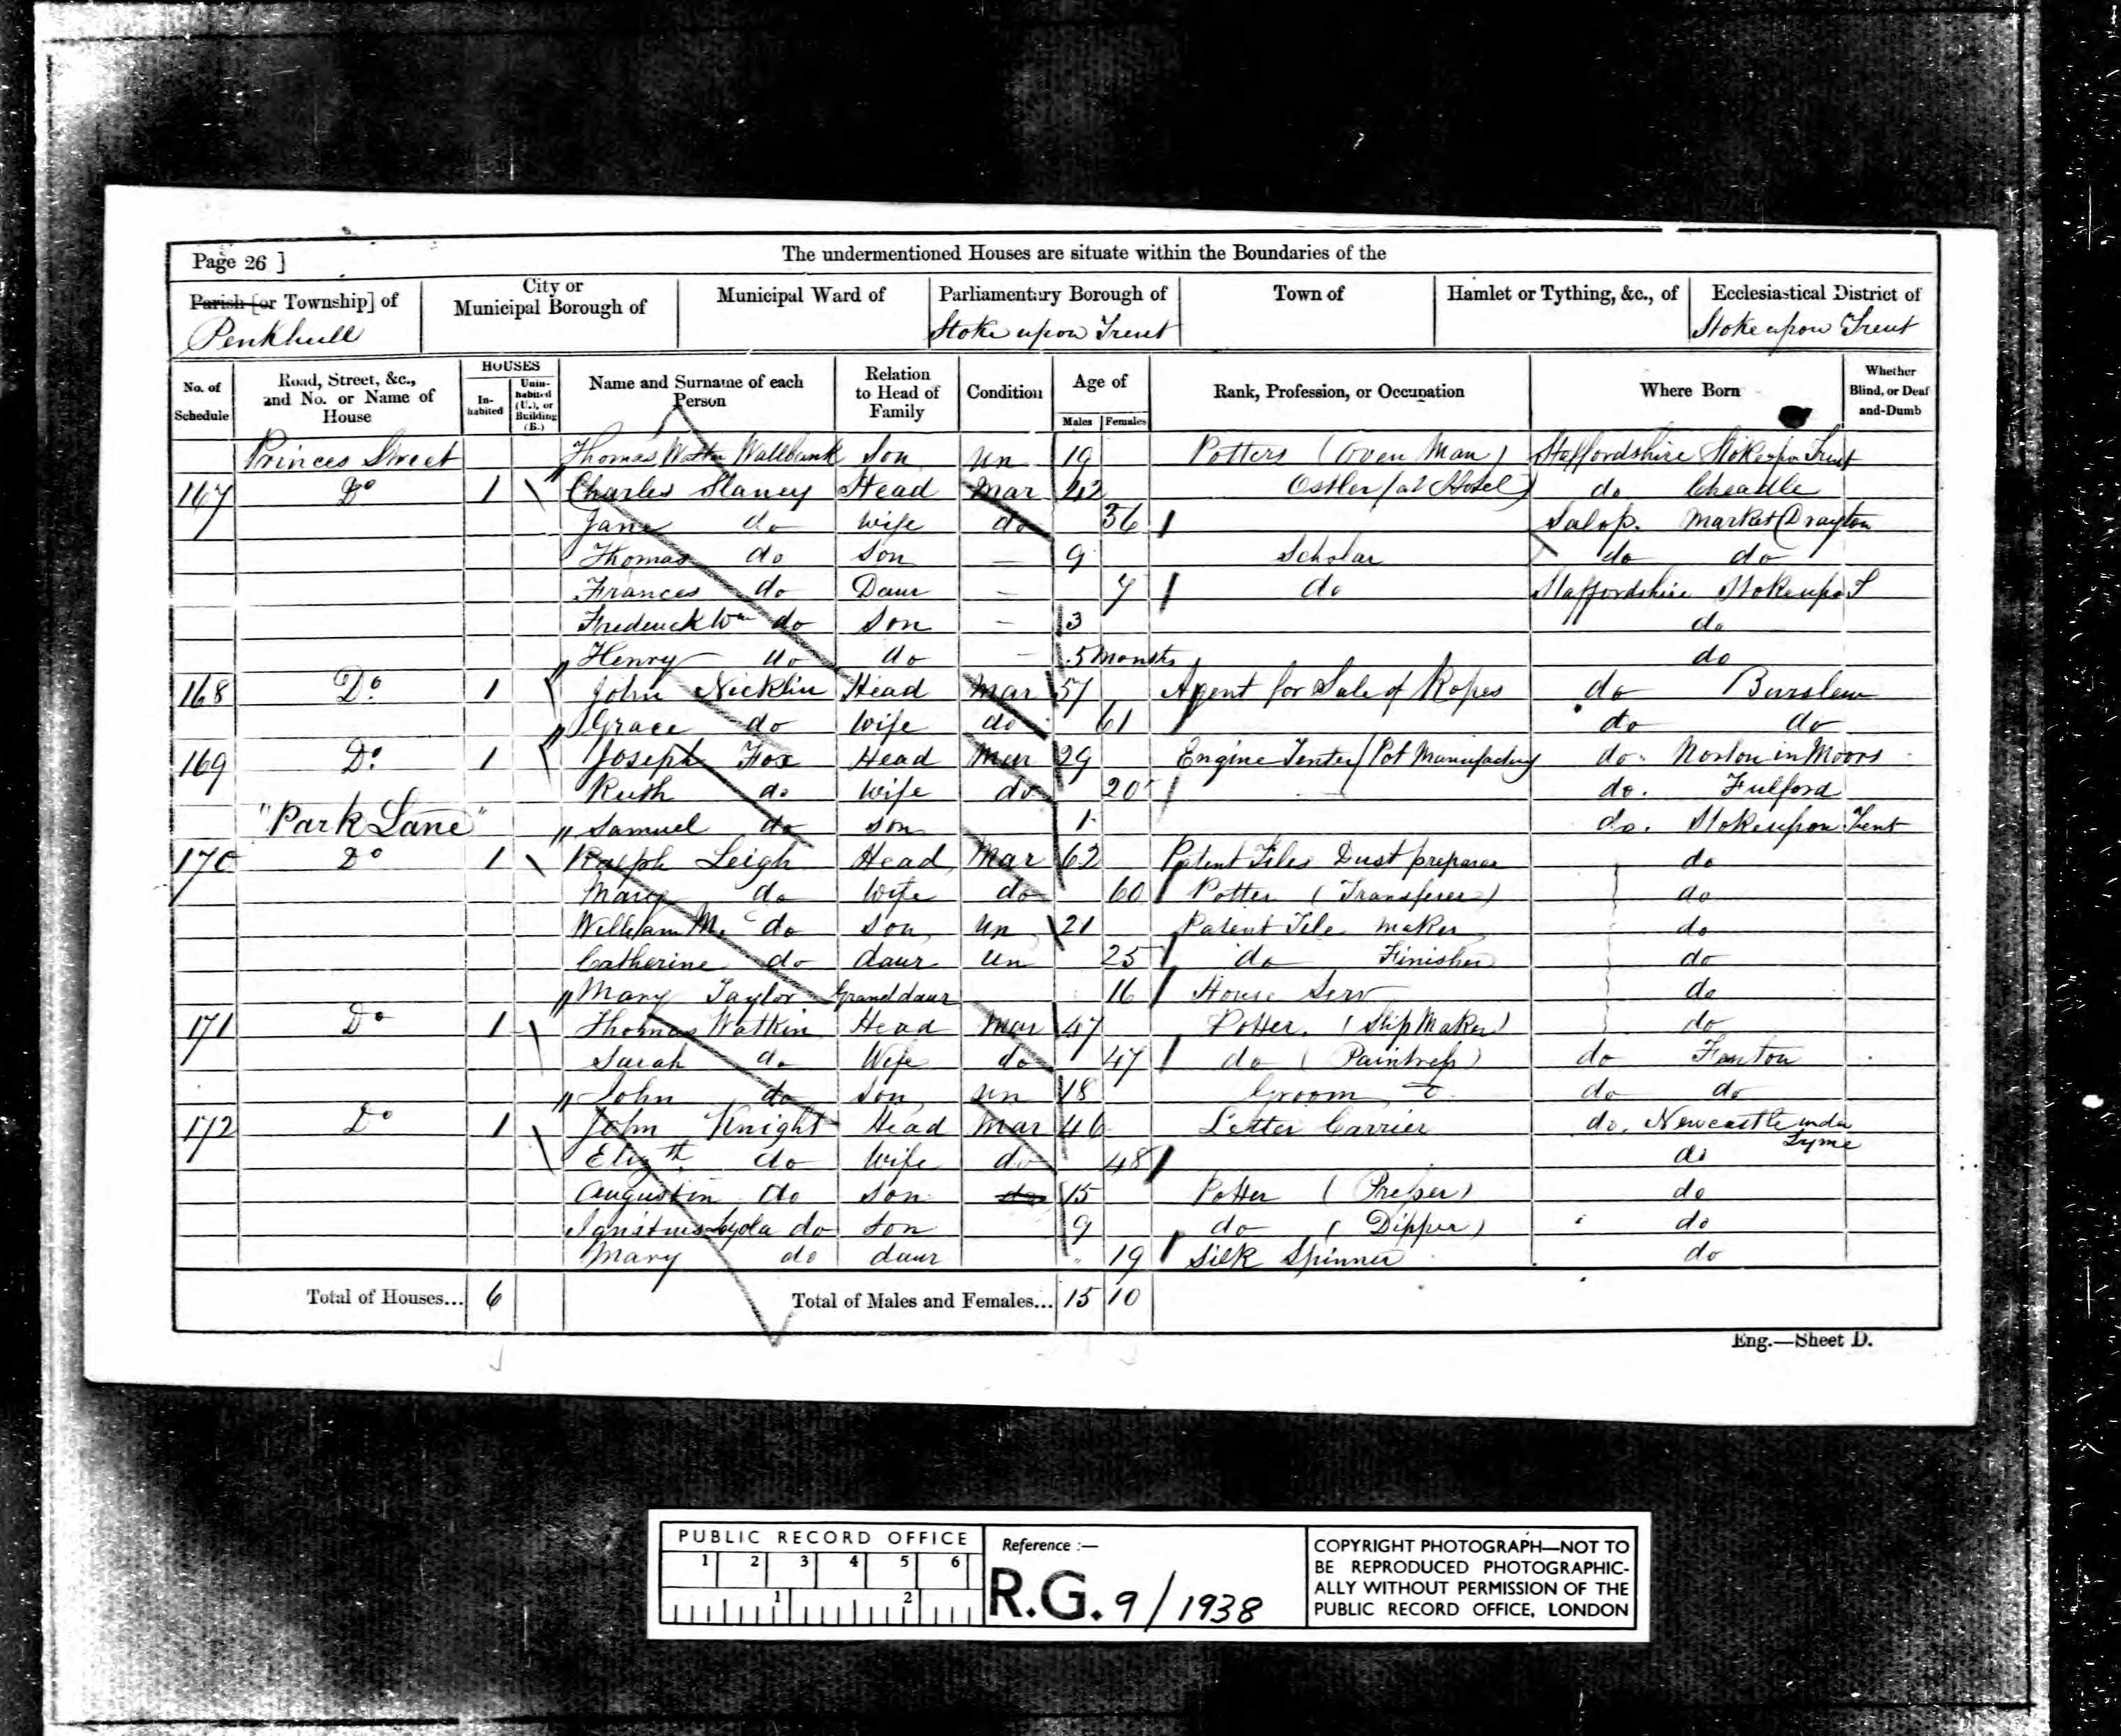 Page 26 ] The undermentioned Houses are situate within the Boundaries of the
Parish [or Township] of City or Municipal Borough of Municipal Ward of Parliamentary Borough of Town of Hamlet or Tything, &c., of Ecclesiastical District of
Penkhull Stoke upon Trent Stoke upon Trent
No. of Schedule Road, Street, &c., and No. or Name of House HOUSES Inhabited Uninhabited (U.), or Building (B.) Name and Surname of each Person Relation to Head of Family Condition Age of Males Females Rank, Profession, or Occupation Where Born Whether Blind, or Deaf and-Dumb
Princes Street Thomas Wallbank Son Un 19 Potters (Oven Man) Staffordshire Stoke upon Trent
167 Do 1 Charles Slaney Head Mar 42 Ostler (at Hotel) do Cheadle
Jane do Wife do 36 Salop. Market Drayton
Thomas do Son — 9 Scholar do do
Frances do Daur — 7 do Staffordshire Stoke upo T
Frederick Wm do Son — 3 do
Henry do do — 5 Months do
168 Do 1 John Nicklin Head Mar 57 Agent for Sale of Ropes do Burslem
Grace do Wife do 61 do do
169 Do 1 Joseph Fox Head Mar 29 Engine Tenter (Pot Manufactory do. Norton in Moors
Ruth do Wife do 20 do. Fulford
"Park Lane" Samuel do Son 1 do. Stoke upon Trent
170 Do 1 Ralph Leigh Head Mar 62 Patent Tiles Dust preparer do
Mary do Wife do 60 Potter (Transferer) do
William M. do Son Un 21 Patent Tile Maker do
Catherine do daur Un 25 do Finisher do
Mary Taylor Grand daur 16 House Serv do
171 Do 1 Thomas Watkin Head Mar 47 Potter. (Slip Maker) do
Sarah do Wife do 47 do (Paintress) do Fenton
John do Son Un 18 Groom do do
172 Do 1 John Knight Head Mar 46 Letter Carrier do. Newcastle under Lyme
Elizth do Wife do 48 do
Augustin do Son do 15 Potter (Presser) do
Ignatius Loyola do Son 9 do (Dipper) do
Mary do daur 19 Silk Spinner do
Total of Houses... 6 Total of Males and Females... 15 10
Eng.—Sheet D.
PUBLIC RECORD OFFICE
1 2 3 4 5 6
1 2
Reference :—
R.G. 9/1938
COPYRIGHT PHOTOGRAPH—NOT TO
BE REPRODUCED PHOTOGRAPHIC-
ALLY WITHOUT PERMISSION OF THE
PUBLIC RECORD OFFICE, LONDON